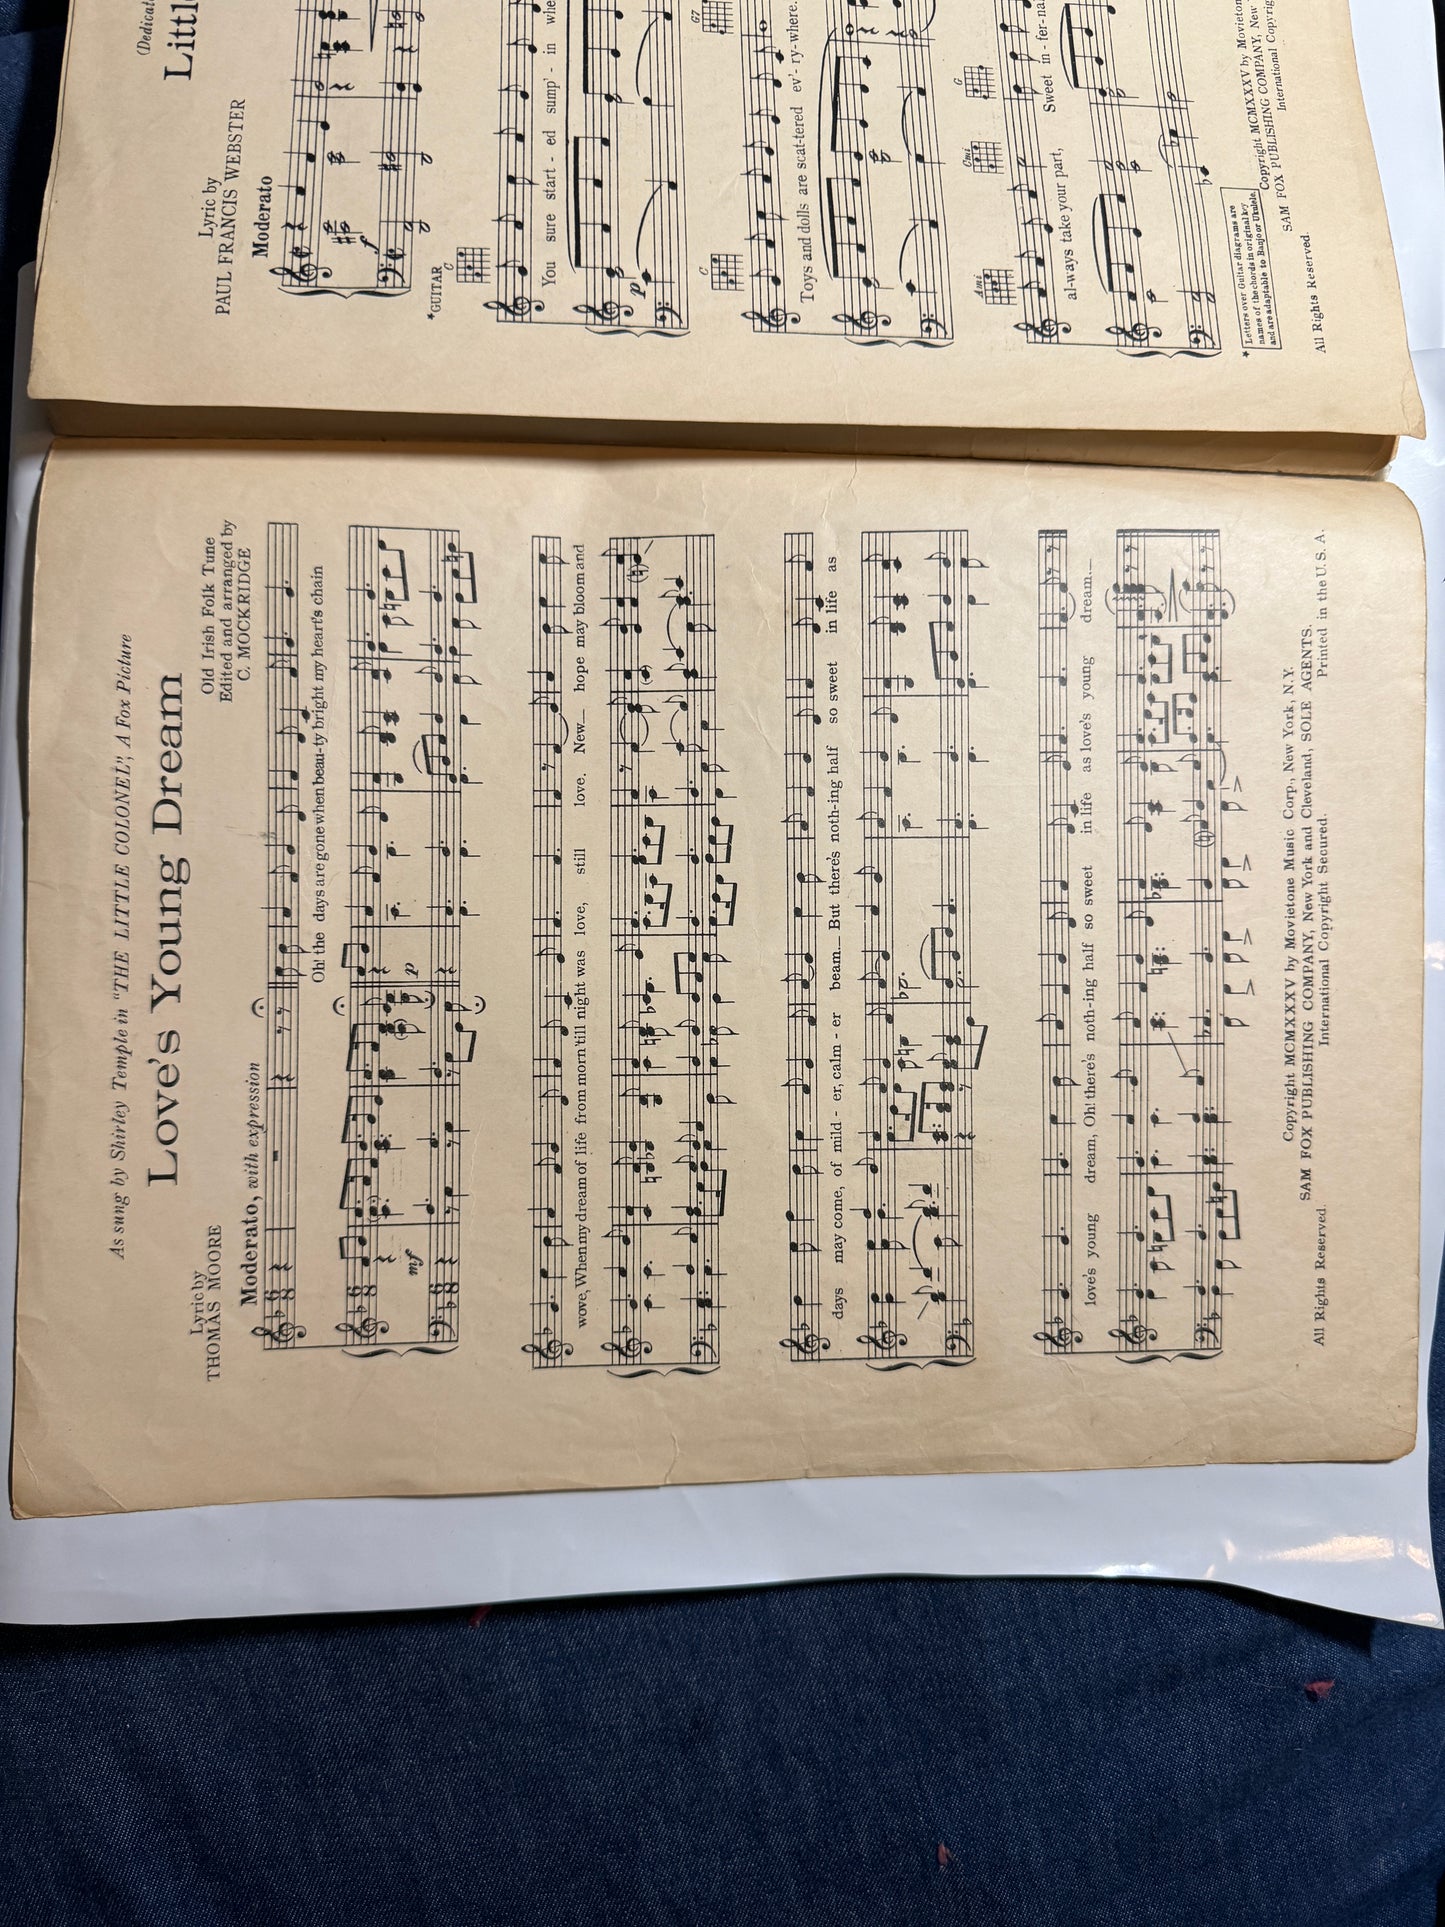 As sung by Shirley Temple in "THE LITTLE COLONEL", A Fox Picture
Love's Young Dream
Lyric by
THOMAS MOORE
Old Irish Folk Tune
Edited and arranged by
C. MOCKRIDGE
Moderato, with expression
Oh! the days are gone when beau-ty bright my heart's chain
mf
p
wove, When my dream of life from morn 'till night was love, still love. New hope may bloom and
days may come, of mild - er, calm - er beam. But there's noth-ing half so sweet in life as
love's young dream, Oh! there's noth-ing half so sweet in life as love's young dream.
Copyright MCMXXXV by Movietone Music Corp., New York, N.Y.
SAM FOX PUBLISHING COMPANY, New York and Cleveland, SOLE AGENTS.
All Rights Reserved.
International Copyright Secured.
Printed in the U.S.A.
(Dedicat
Littl
Lyric by
PAUL FRANCIS WEBSTER
Moderato
f
*GUITAR
C
You sure start - ed sump' - in whe
p
C
G7
Toys and dolls are scat-tered ev'-ry-where.
Ami
Cmi
G
al-ways take your part,
Sweet in - fer-na
* Letters over Guitar diagrams are
names of the chords in original key
and are adaptable to Banjo or Ukulele.
Copyright MCMXXXV by Movieton
SAM FOX PUBLISHING COMPANY, New
All Rights Reserved.
International Copyrig